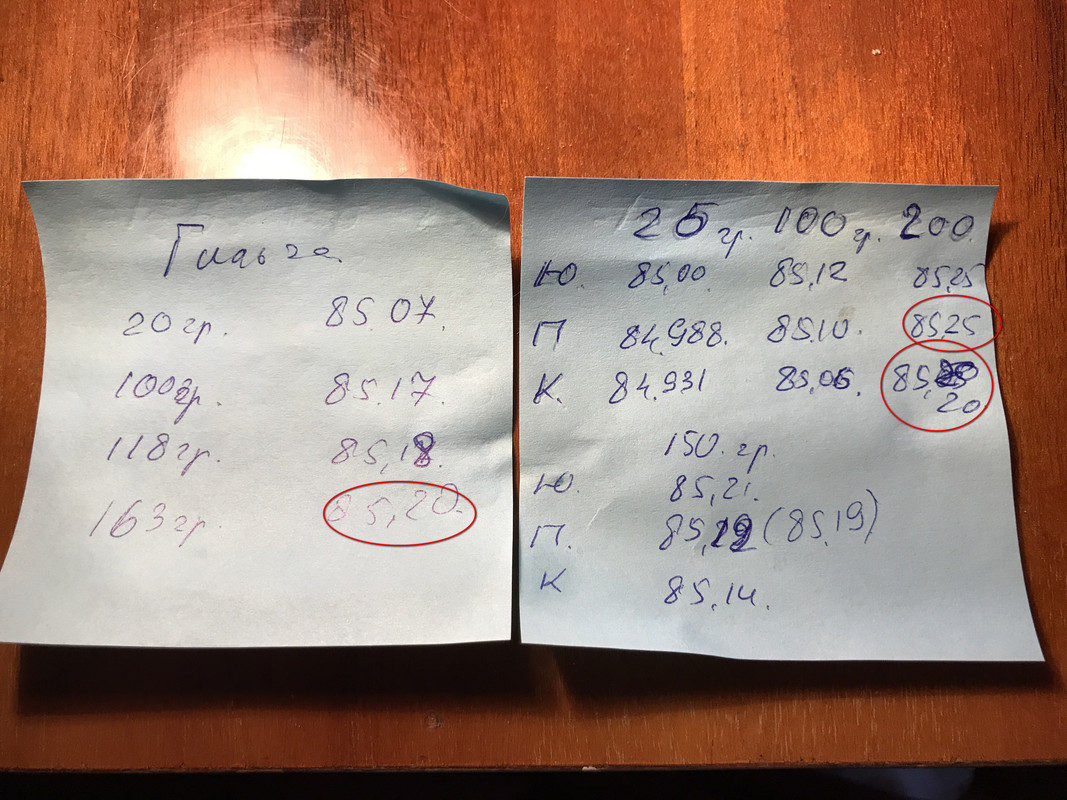 Гильза
20гр. 85.07.
100гр. 85.17.
118гр. 85,18.
163гр. 85,20.
25гр. 100гр. 200.
Ю. 85,00. 85,12 85,25
П 84.988. 85.10. 85,25
К. 84.931 85,06. 85,
20
150.гр.
Ю. 85,21.
П. 85,19 (85,19)
К 85.14.